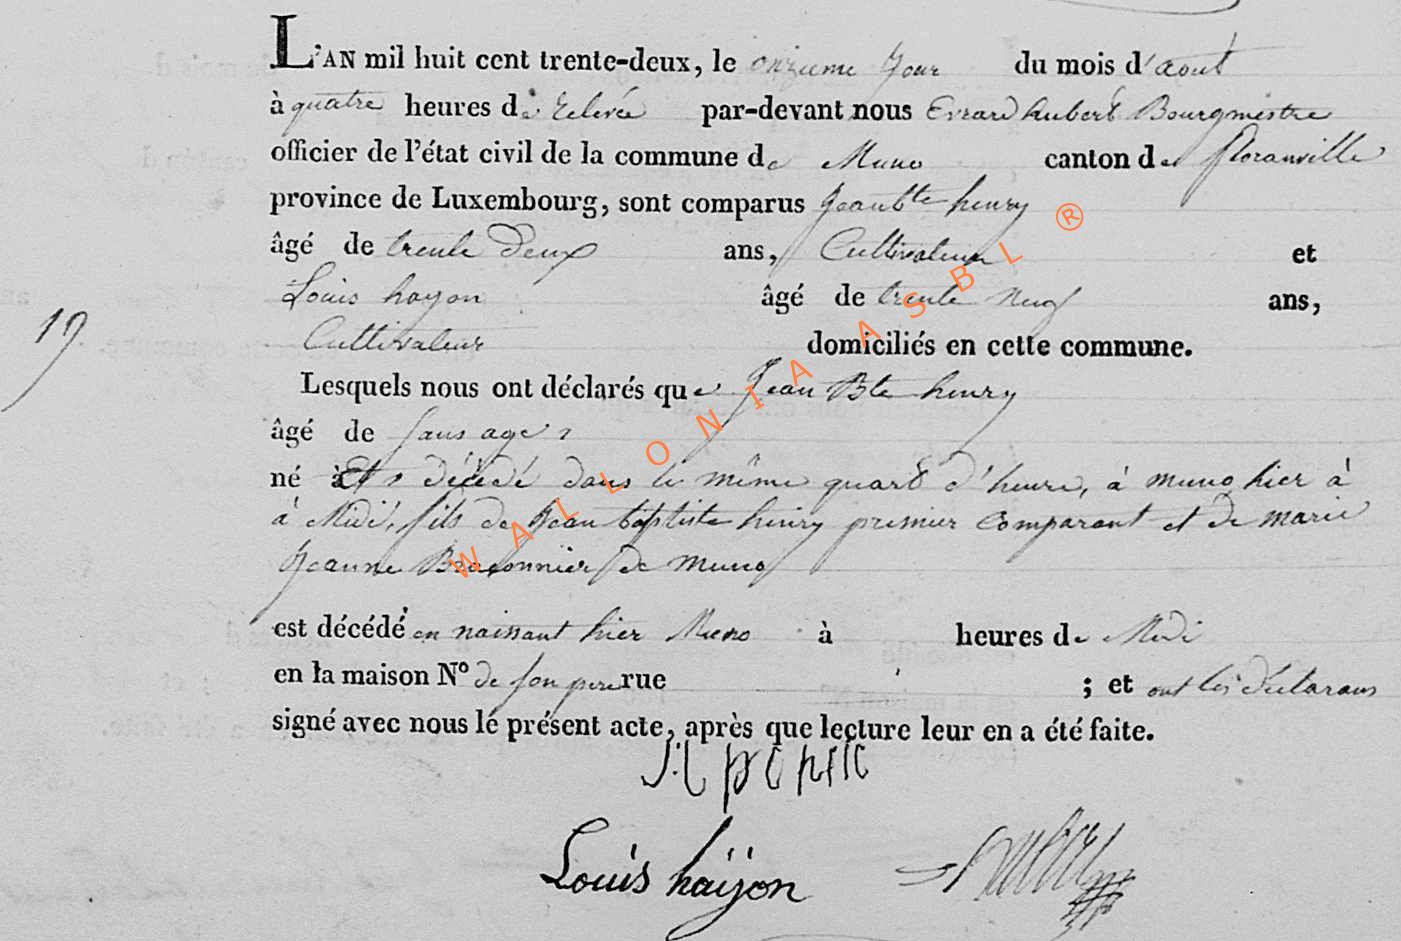 L'AN mil huit cent trente-deux, le onzieme Jour du mois d'aout
à quatre heures de relevée par-devant nous Evrard hubert Bourgmestre
officier de l'état civil de la commune de Muno canton de floranville
province de Luxembourg, sont comparus Jean bte henry
âgé de trente Deux ans, Cultivateur et
Louis hayon âgé de trente Neuf ans,
17 Cultivateur domiciliés en cette commune.
Lesquels nous ont déclarés que Jean Bte henry
âgé de sans age
né à Et décédé dans le même quart d'heure, à muno hier à
à Midi, fils de Jean baptiste henry premier Comparant et de marie
Jeanne Braconnier de muno
est décédé en naissant hier Muno à heures de Midi
en la maison N° de son pere rue ; et ont les déclarans
signé avec nous le présent acte, après que lecture leur en a été faite.
Louis haÿon
WALLONIA ASBL ®